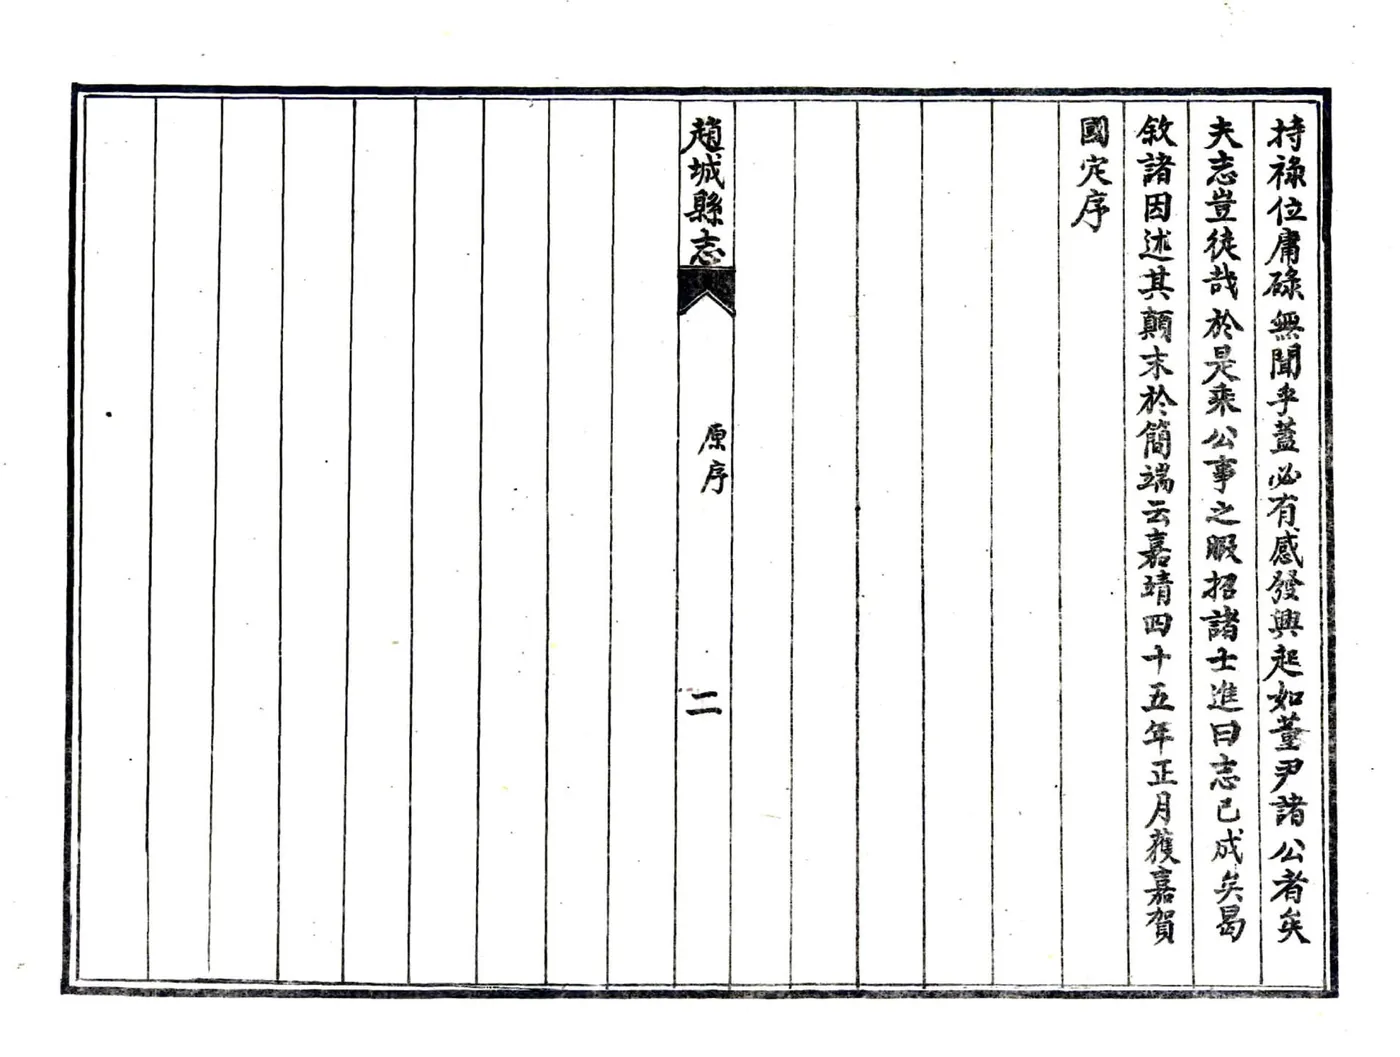 持禄位庸碌無聞乎蓋必有感發興起如董尹諸公者矣
夫志豈徒哉於是乘公事之暇招諸士進曰志已成矣曷
敘諸因述其顛末於簡端云嘉靖四十五年正月獲嘉賀
國定序
趙城縣志
原序
二